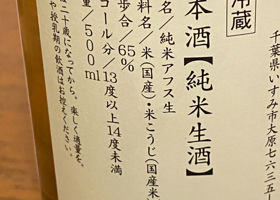 冷蔵
千葉県いすみ市大原七六三五
本酒【純米生酒】
名／純米アフス生
料名／米（国産）・米こうじ（国産米
歩合／65％
コール分／13度以上14度未満
量／500ml
は二十歳になってから。楽しく適量を。
や授乳期の飲酒はお控えください。